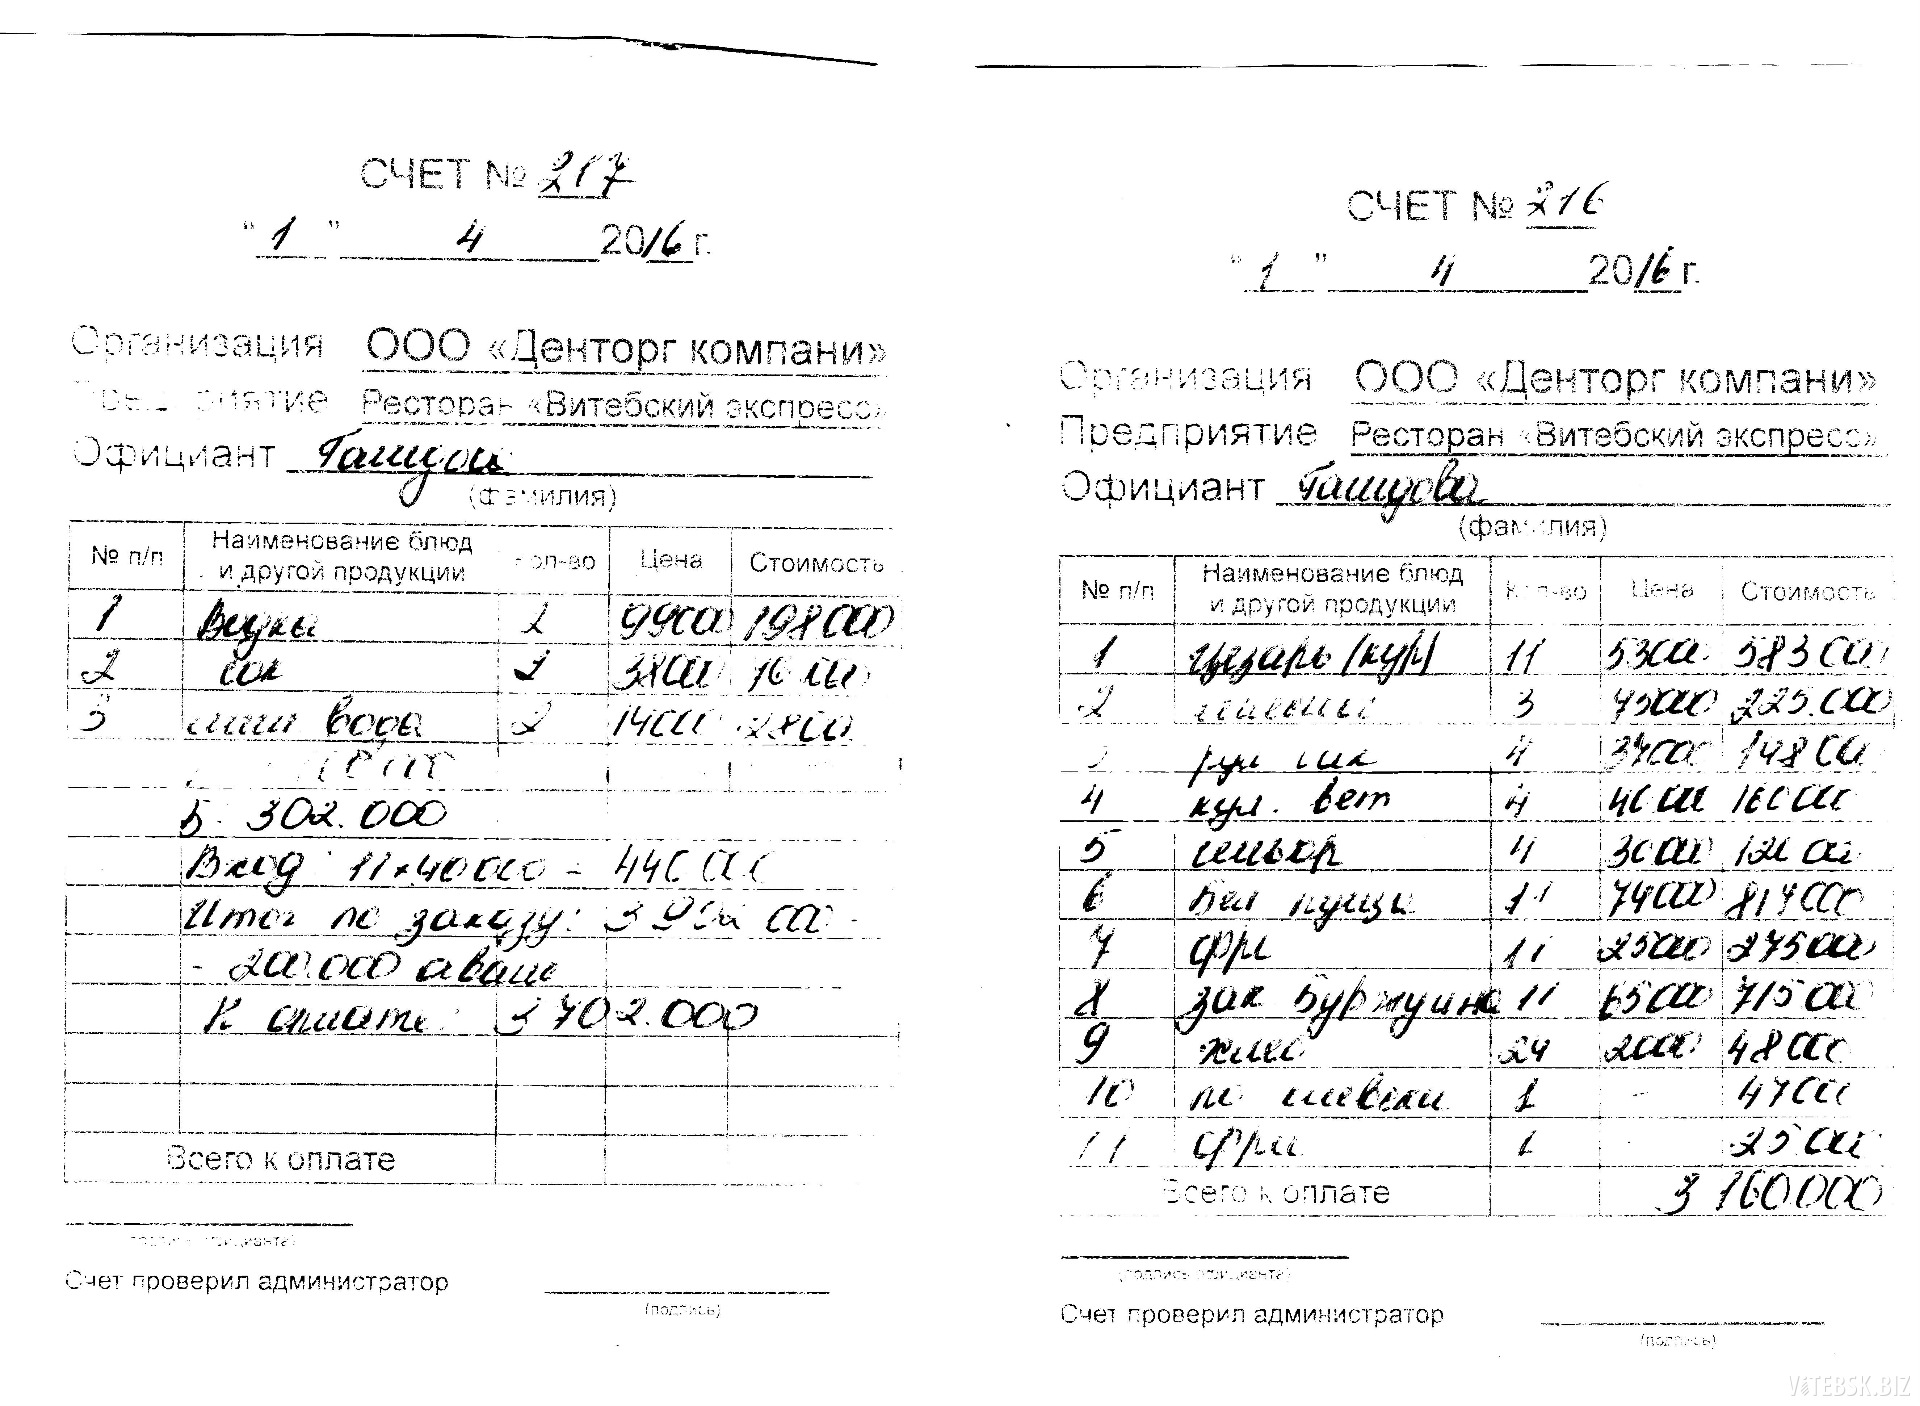 СЧЕТ № 217
" 1 " 4 2016 г.
Организация ООО «Денторг компани»
Предприятие Ресторан «Витебский экспресс»
Официант
(фамилия)
№ п/п Наименование блюд и другой продукции Кол-во Цена Стоимость
1 Водка 2 99000 198000
2 сок 2 38000
3 мин вода 2 14000 28000
Б. 302.000
Вход: 11×40000 = 440000
Итог по заказу:
- 200.000 аванс
К оплате: 3 702.000
Всего к оплате
(подпись официанта)
Счет проверил администратор
(подпись)
СЧЕТ № 216
" 1 " 4 2016 г.
Организация ООО «Денторг компани»
Предприятие Ресторан «Витебский экспресс»
Официант
(фамилия)
№ п/п Наименование блюд и другой продукции Кол-во Цена Стоимость
1 цезарь (кур) 11 53000 583000
2 3 75000 225.000
4 37000 148000
4 кул. вет 4 40000 160000
5 4 30000 120000
6 Бел пуща 11 74000 814000
7 фри 11 25000 275000
8 зак Буржуина 11 65000 715000
9 хлеб 24 2000 48000
10 по киевски 1 - 47000
11 фри 1 - 25000
Всего к оплате 3 160.000
(подпись официанта)
Счет проверил администратор
(подпись)
VITEBSK.BIZ